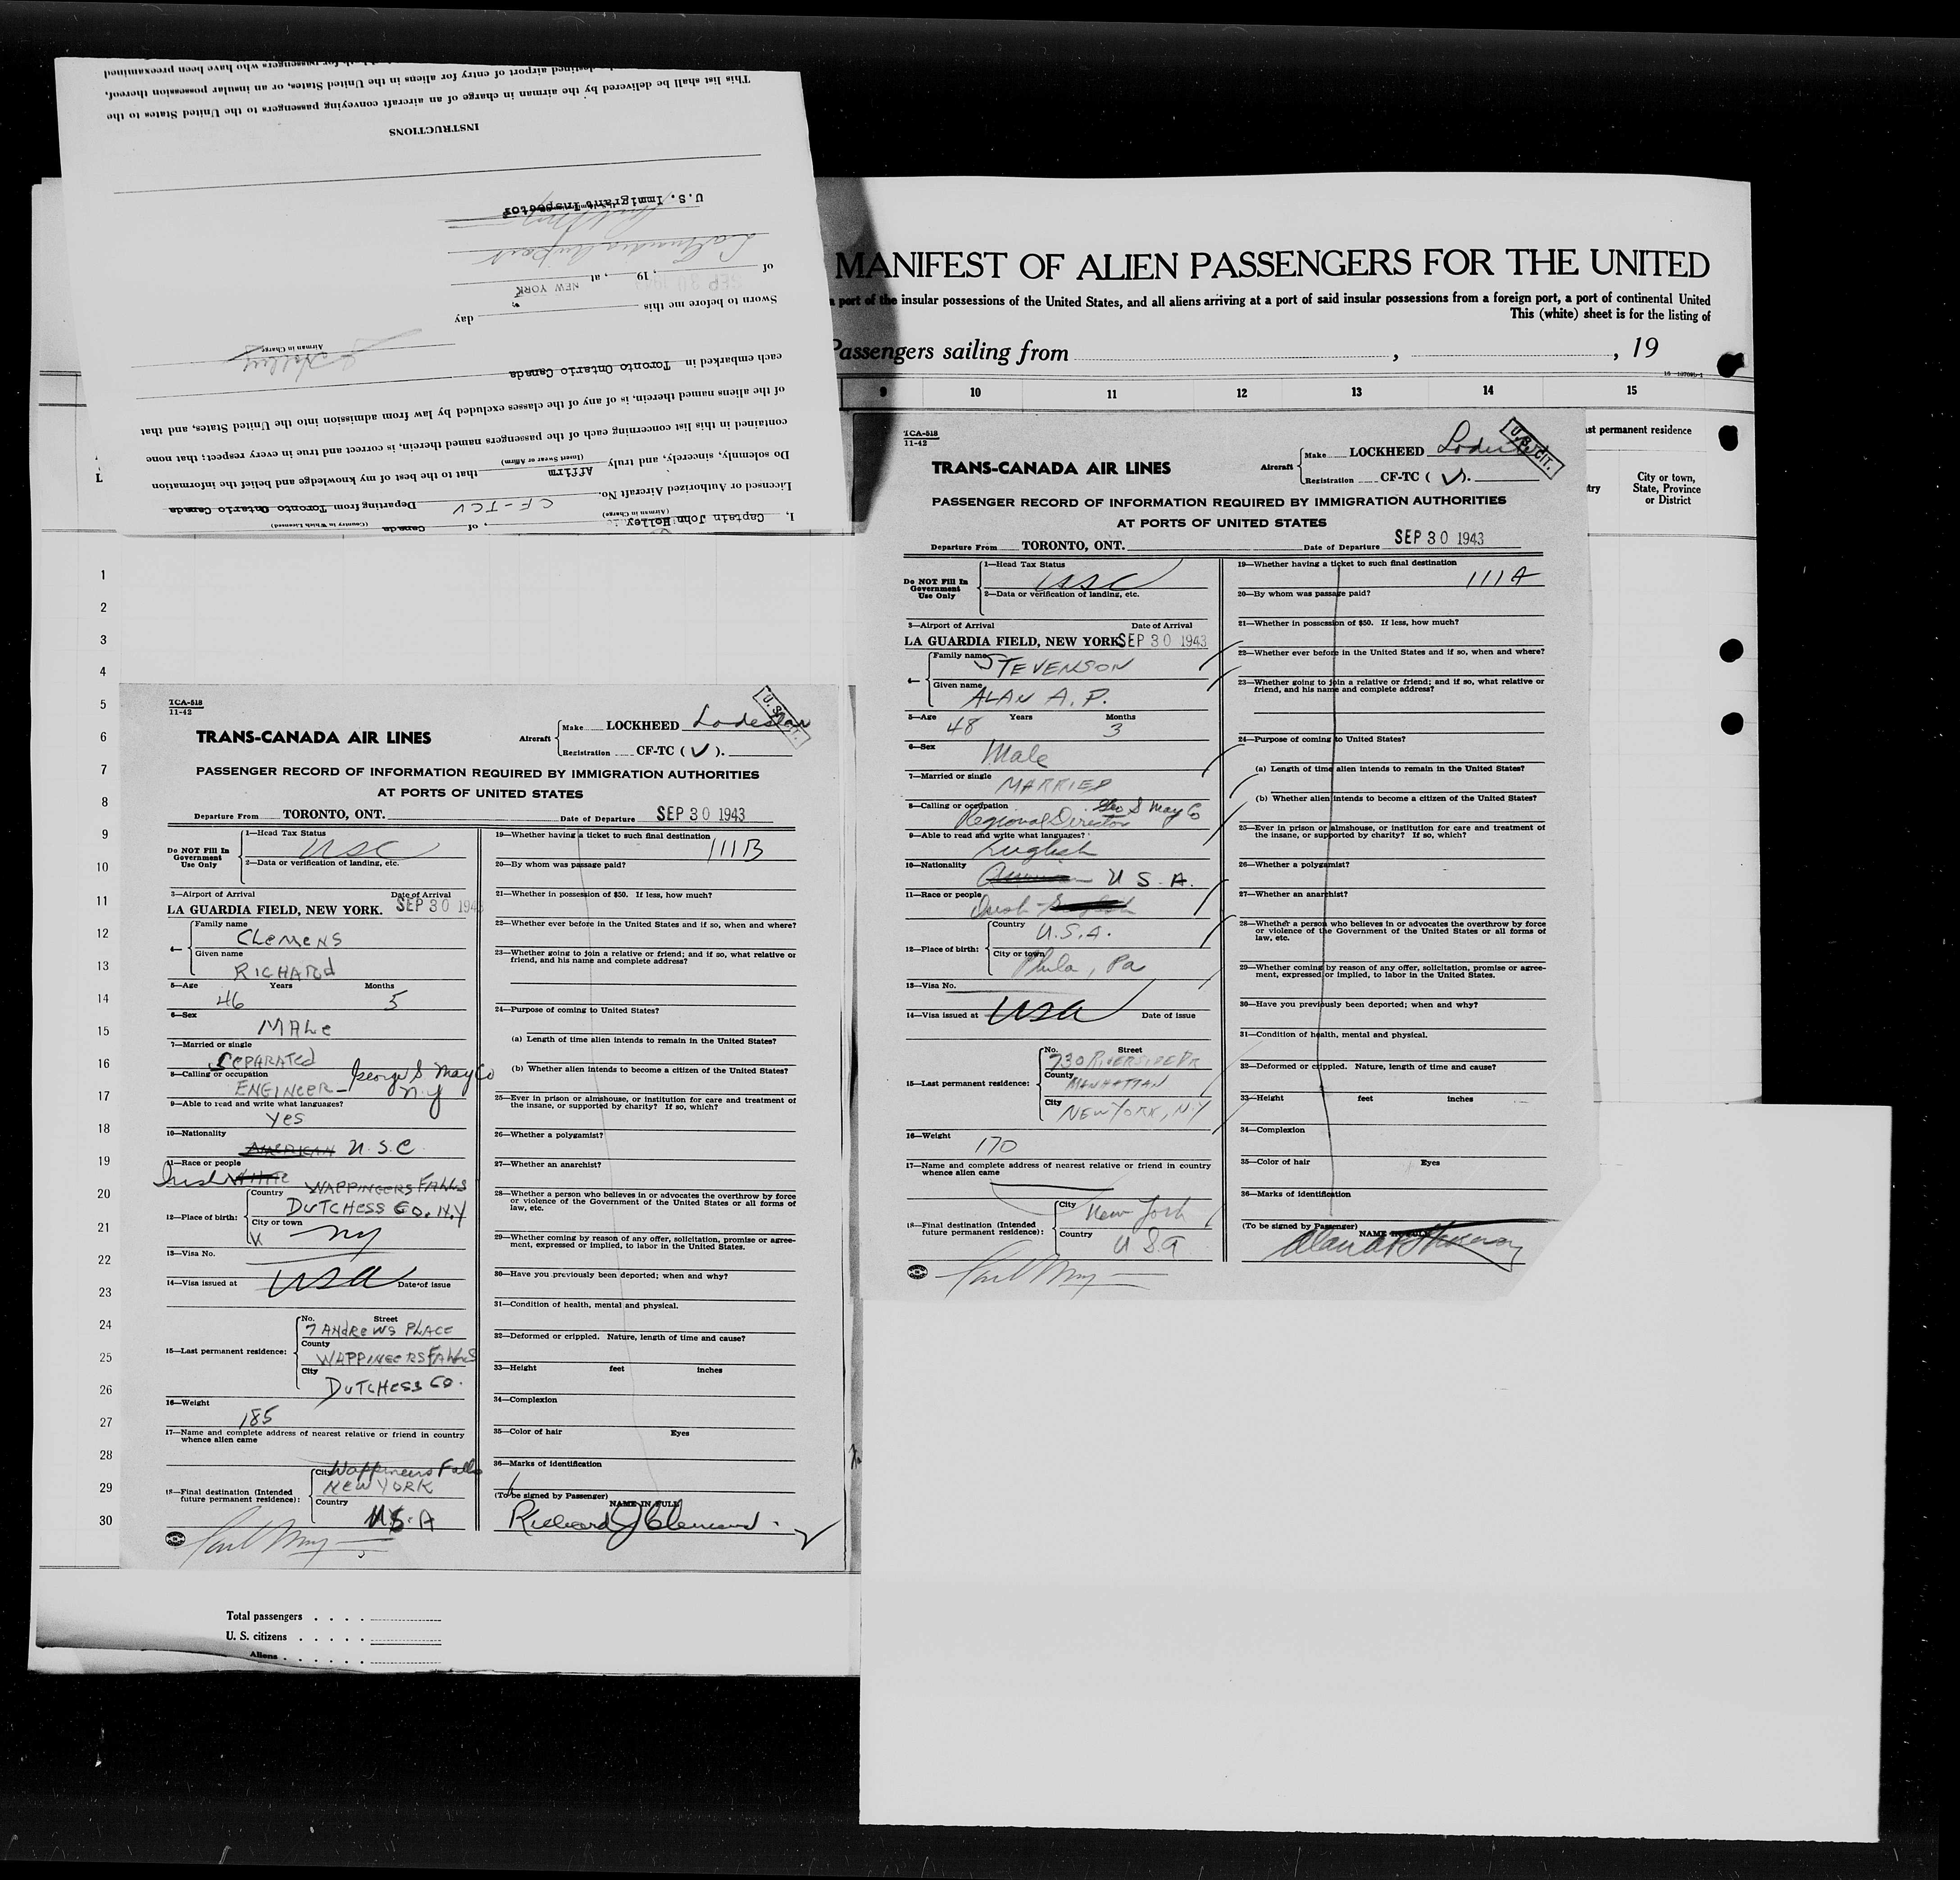 This list shall be delivered by the airman in charge of an aircraft conveying passengers to the United States to the
destined airport of entry for aliens in the United States, or an insular possession thereof,
for passengers who have been preexamined
INSTRUCTIONS
U.S. Immigrant Inspector
of SEP 30 1943, 19, at NEW YORK
Sworn to before me this day
Airman in Charge
each embarked in Toronto Ontario Canada
of the aliens named therein, is of any of the classes excluded by law from admission into the United States, and that
contained in this list concerning each of the passengers named therein, is correct and true in every respect; that none
Do solemnly, sincerely, and truly Affirm that to the best of my knowledge and belief the information
(Insert Swear or Affirm)
Licensed or Authorized Aircraft No. CF-TCV Departing from Toronto Ontario Canada
(Airman in Charge) (Country in Which Licensed)
I, Captain John Holley, of Canada
MANIFEST OF ALIEN PASSENGERS FOR THE UNITED
a port of the insular possessions of the United States, and all aliens arriving at a port of said insular possessions from a foreign port, a port of continental United
This (white) sheet is for the listing of
Passengers sailing from , , 19
9 10 11 12 13 14 15
st permanent residence
try
City or town,
State, Province
or District
L
1
2
3
4
5
6
7
8
9
10
11
12
13
14
15
16
17
18
19
20
21
22
23
24
25
26
27
28
29
30
TCA-518
11-42
U.S. CIT.
TRANS-CANADA AIR LINES
Aircraft Make LOCKHEED Lodestar
Registration CF-TC (V).
PASSENGER RECORD OF INFORMATION REQUIRED BY IMMIGRATION AUTHORITIES
AT PORTS OF UNITED STATES
Departure From TORONTO, ONT. Date of Departure SEP 30 1943
Do NOT Fill In
Government
Use Only
1—Head Tax Status
USC
2—Data or verification of landing, etc.
3—Airport of Arrival Date of Arrival
LA GUARDIA FIELD, NEW YORK. SEP 30 1943
4— Family name
CLEMENS
Given name
RICHARD
5—Age Years Months
46 5
6—Sex
MALE
7—Married or single
SEPARATED
8—Calling or occupation George S May Co
ENGINEER— N.Y
9—Able to read and write what languages?
Yes
10—Nationality
AMERICAN U.S.C.
11—Race or people
Irish WHITE
12—Place of birth:
Country WAPPINGERS FALLS
DUTCHESS CO. N.Y
City or town
NY
13—Visa No.
14—Visa issued at USA Date of issue
15—Last permanent residence:
No. Street
7 ANDREWS PLACE
County
WAPPINGERS FALLS
City
DUTCHESS CO.
16—Weight
185
17—Name and complete address of nearest relative or friend in country
whence alien came
18—Final destination (Intended
future permanent residence):
City Wappingers Falls
NEW YORK
Country
U.S.A
19—Whether having a ticket to such final destination
111B
20—By whom was passage paid?
21—Whether in possession of $50. If less, how much?
22—Whether ever before in the United States and if so, when and where?
23—Whether going to join a relative or friend; and if so, what relative or
friend, and his name and complete address?
24—Purpose of coming to United States?
(a) Length of time alien intends to remain in the United States?
(b) Whether alien intends to become a citizen of the United States?
25—Ever in prison or almshouse, or institution for care and treatment of
the insane, or supported by charity? If so, which?
26—Whether a polygamist?
27—Whether an anarchist?
28—Whether a person who believes in or advocates the overthrow by force
or violence of the Government of the United States or all forms of
law, etc.
29—Whether coming by reason of any offer, solicitation, promise or agree-
ment, expressed or implied, to labor in the United States.
30—Have you previously been deported; when and why?
31—Condition of health, mental and physical.
32—Deformed or crippled. Nature, length of time and cause?
33—Height feet inches
34—Complexion
35—Color of hair Eyes
36—Marks of identification
(To be signed by Passenger)
NAME IN FULL
Richard J Clemens.
Total passengers
U. S. citizens
Aliens
TCA-518
11-42
U.S. CIT.
TRANS-CANADA AIR LINES
Aircraft Make LOCKHEED Lodestar
Registration CF-TC (V).
PASSENGER RECORD OF INFORMATION REQUIRED BY IMMIGRATION AUTHORITIES
AT PORTS OF UNITED STATES
Departure From TORONTO, ONT. Date of Departure SEP 30 1943
Do NOT Fill In
Government
Use Only
1—Head Tax Status
USC
2—Data or verification of landing, etc.
3—Airport of Arrival Date of Arrival
LA GUARDIA FIELD, NEW YORK. SEP 30 1943
4— Family name
STEVENSON
Given name
ALAN A. P.
5—Age Years Months
48 3
6—Sex
Male
7—Married or single
MARRIED
8—Calling or occupation Geo S May Co
Regional Director
9—Able to read and write what languages?
English
10—Nationality
U S. A.
11—Race or people
Irish English
12—Place of birth:
Country
U.S.A.
City or town
Phila, Pa
13—Visa No.
14—Visa issued at USA Date of issue
15—Last permanent residence:
No. Street
730 RIVERSIDE DR
County
MANHATTAN
City
NEW YORK, N.Y
16—Weight
170
17—Name and complete address of nearest relative or friend in country
whence alien came
18—Final destination (Intended
future permanent residence):
City
New York
Country
U S A
19—Whether having a ticket to such final destination
111A
20—By whom was passage paid?
21—Whether in possession of $50. If less, how much?
22—Whether ever before in the United States and if so, when and where?
23—Whether going to join a relative or friend; and if so, what relative or
friend, and his name and complete address?
24—Purpose of coming to United States?
(a) Length of time alien intends to remain in the United States?
(b) Whether alien intends to become a citizen of the United States?
25—Ever in prison or almshouse, or institution for care and treatment of
the insane, or supported by charity? If so, which?
26—Whether a polygamist?
27—Whether an anarchist?
28—Whether a person who believes in or advocates the overthrow by force
or violence of the Government of the United States or all forms of
law, etc.
29—Whether coming by reason of any offer, solicitation, promise or agree-
ment, expressed or implied, to labor in the United States.
30—Have you previously been deported; when and why?
31—Condition of health, mental and physical.
32—Deformed or crippled. Nature, length of time and cause?
33—Height feet inches
34—Complexion
35—Color of hair Eyes
36—Marks of identification
(To be signed by Passenger)
NAME IN FULL